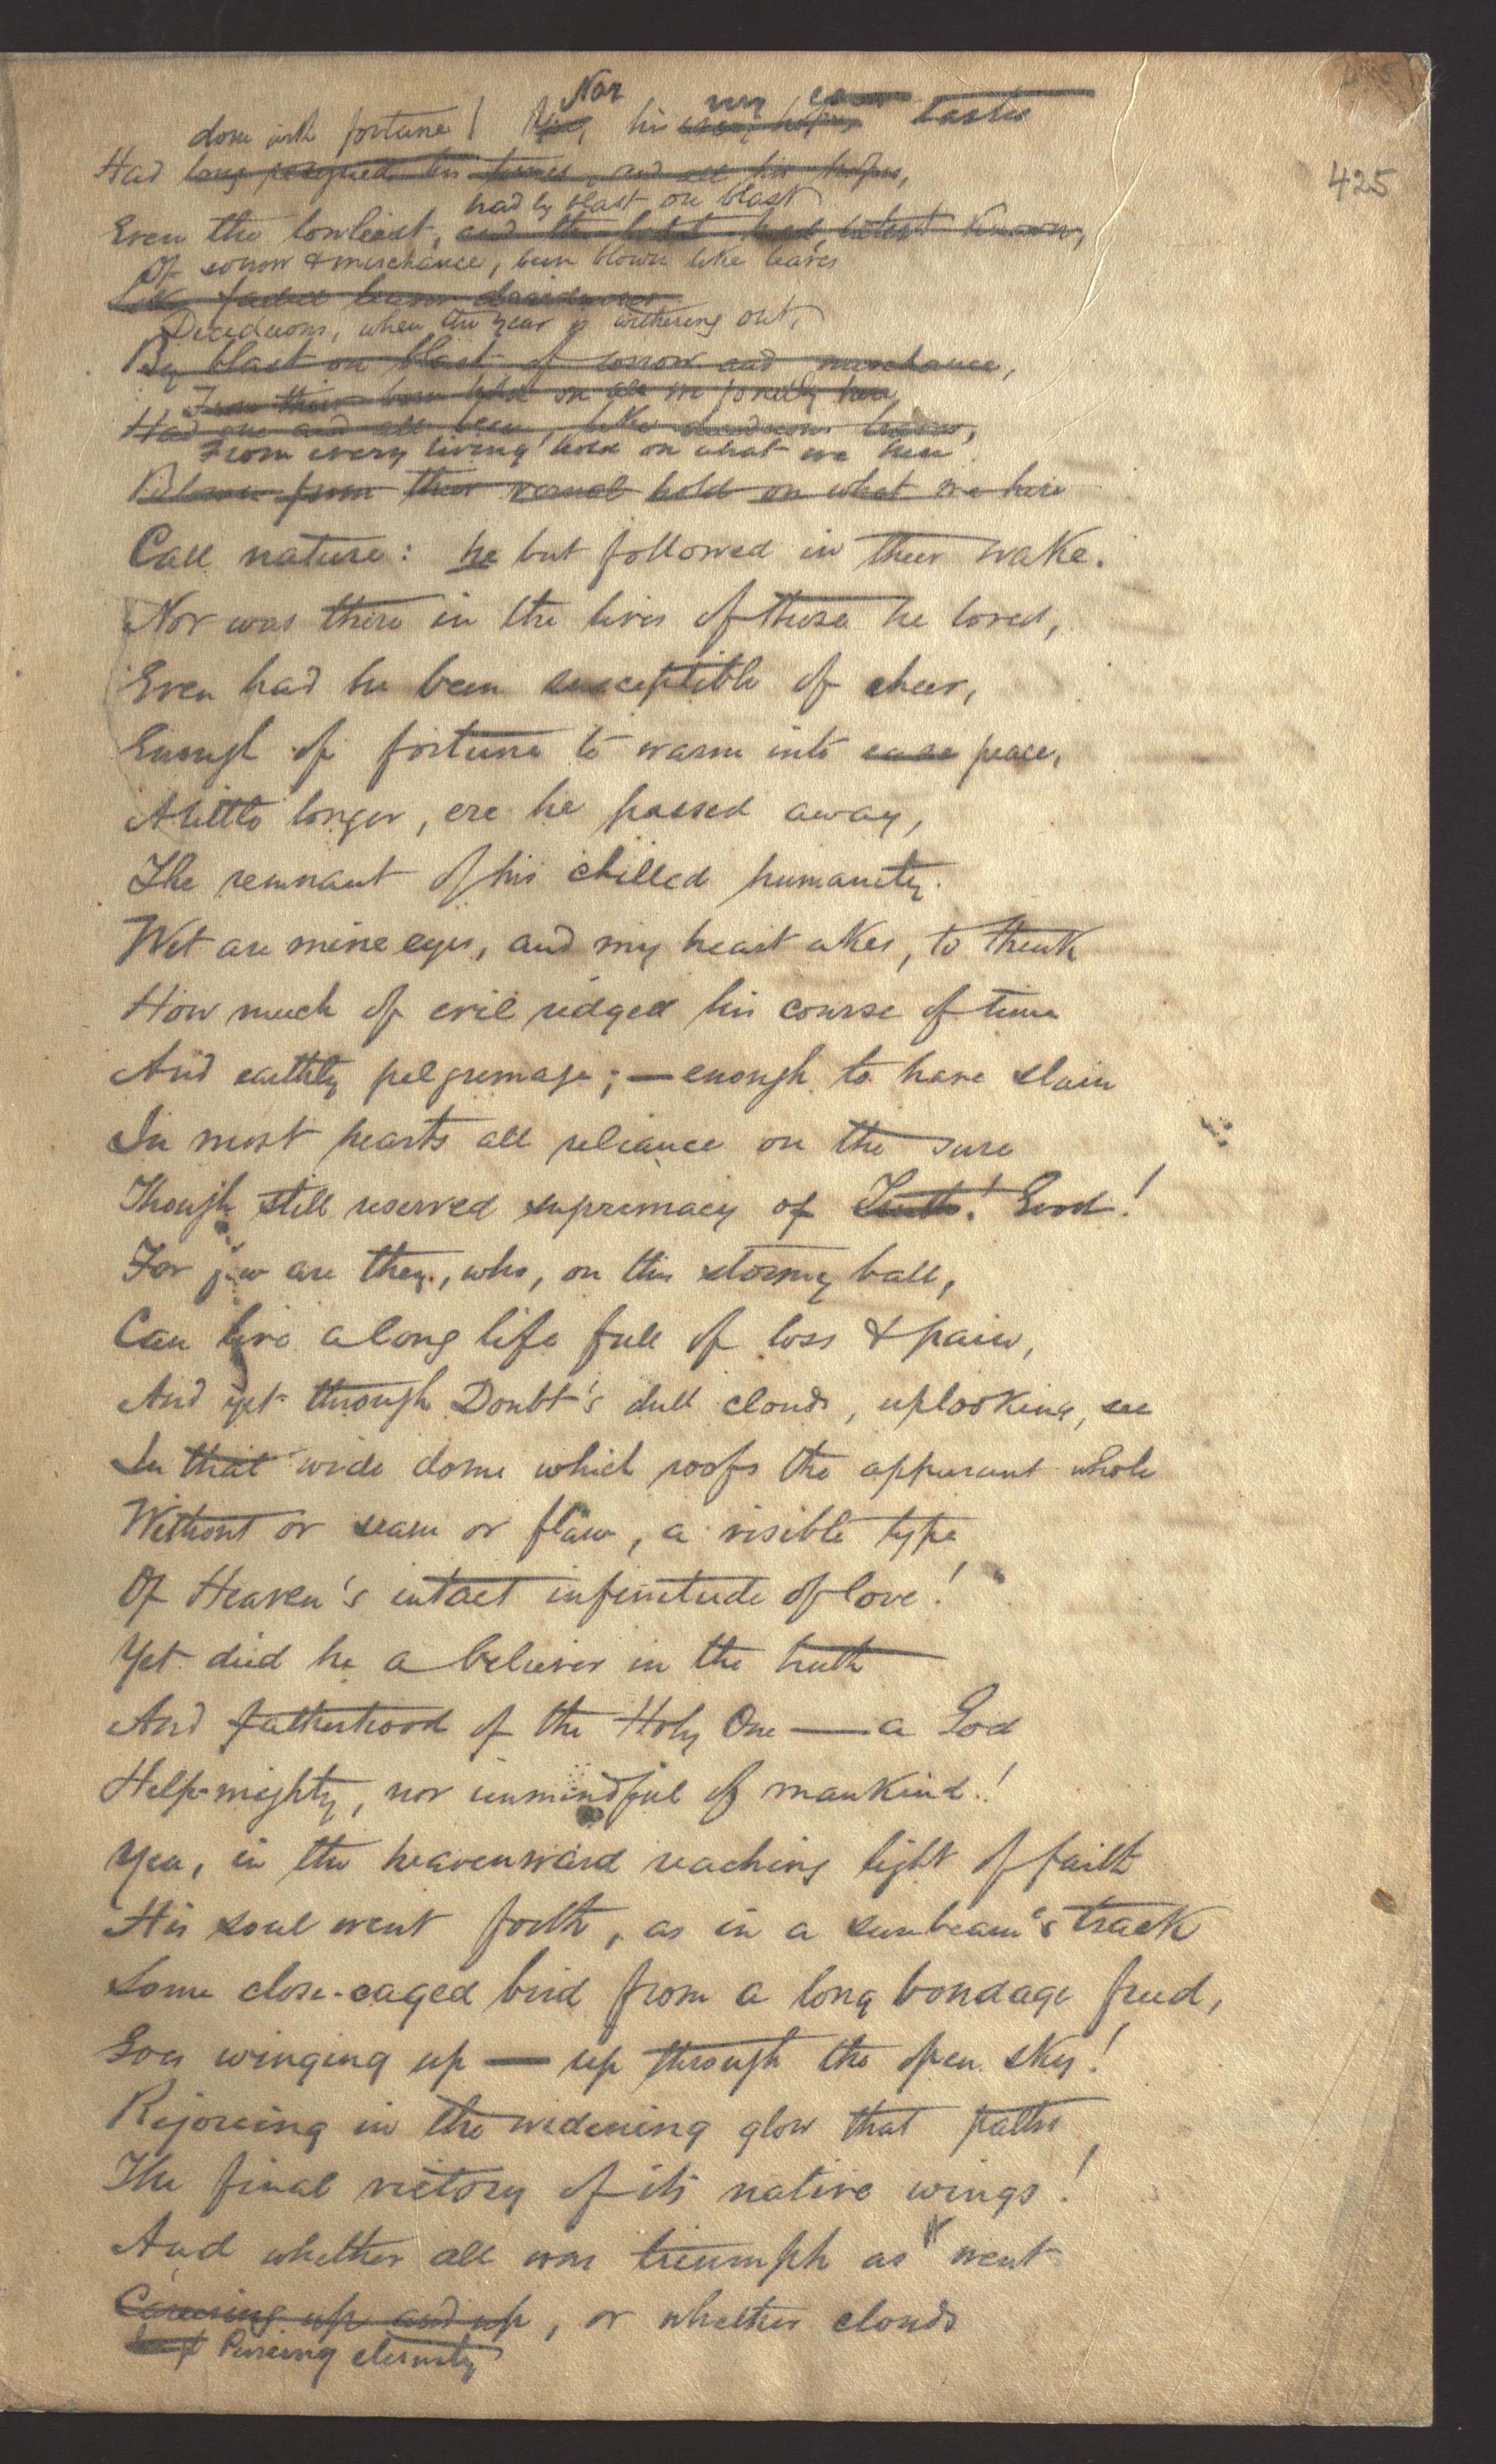 425
Nor
done with fortune! his very hopes tastes
Had long resigned his and all his hopes,
had by blast on blast
Even the lowliest, and the latest known,
Of sorrow & mischance, been blown like leaves
Like faded leaves deciduous
Deciduous, when the year is withering out,
By blast on blast of sorrow and mischance,
From their hold on all we fondly here
Had one and all been, like deciduous leaves,
From every living hold on what we here
Blown from their vernal hold on what we here
Call nature: he but followed in their wake.
Nor was there in the lives of those he loved,
Even had he been susceptible of cheer,
Enough of fortune to warm into ease peace,
A little longer, ere he passed away,
The remnant of his chilled humanity.
Wet are mine eyes, and my heart akes, to think
How much of evil ridged his course of time
And earthly pilgrimage; — enough to have slain
In most hearts all reliance on the sure
Though still reserved supremacy of Truth! Good!
For few are they, who, on this stormy ball,
Can live a long life full of loss & pain,
And yet through Doubt's dull clouds, uplooking, see
In that wide dome which roofs the apparent whole
Without or seam or flaw, a visible type
Of Heaven's intact infinitude of love!
Yet died he a believer in the truth
And fatherhood of the Holy One — a God
Help-mighty, nor unmindful of mankind!
Yea, in the heavenward reaching light of faith
His soul went forth, as in a sunbeam's track
Some close-caged bird from a long bondage freed,
Goes winging up — up through the open sky!
Rejoicing in the widening glow that paths
The final victory of its native wings!
And whether all was triumph as it went
Careering up and up, or whether clouds
Piercing eternity